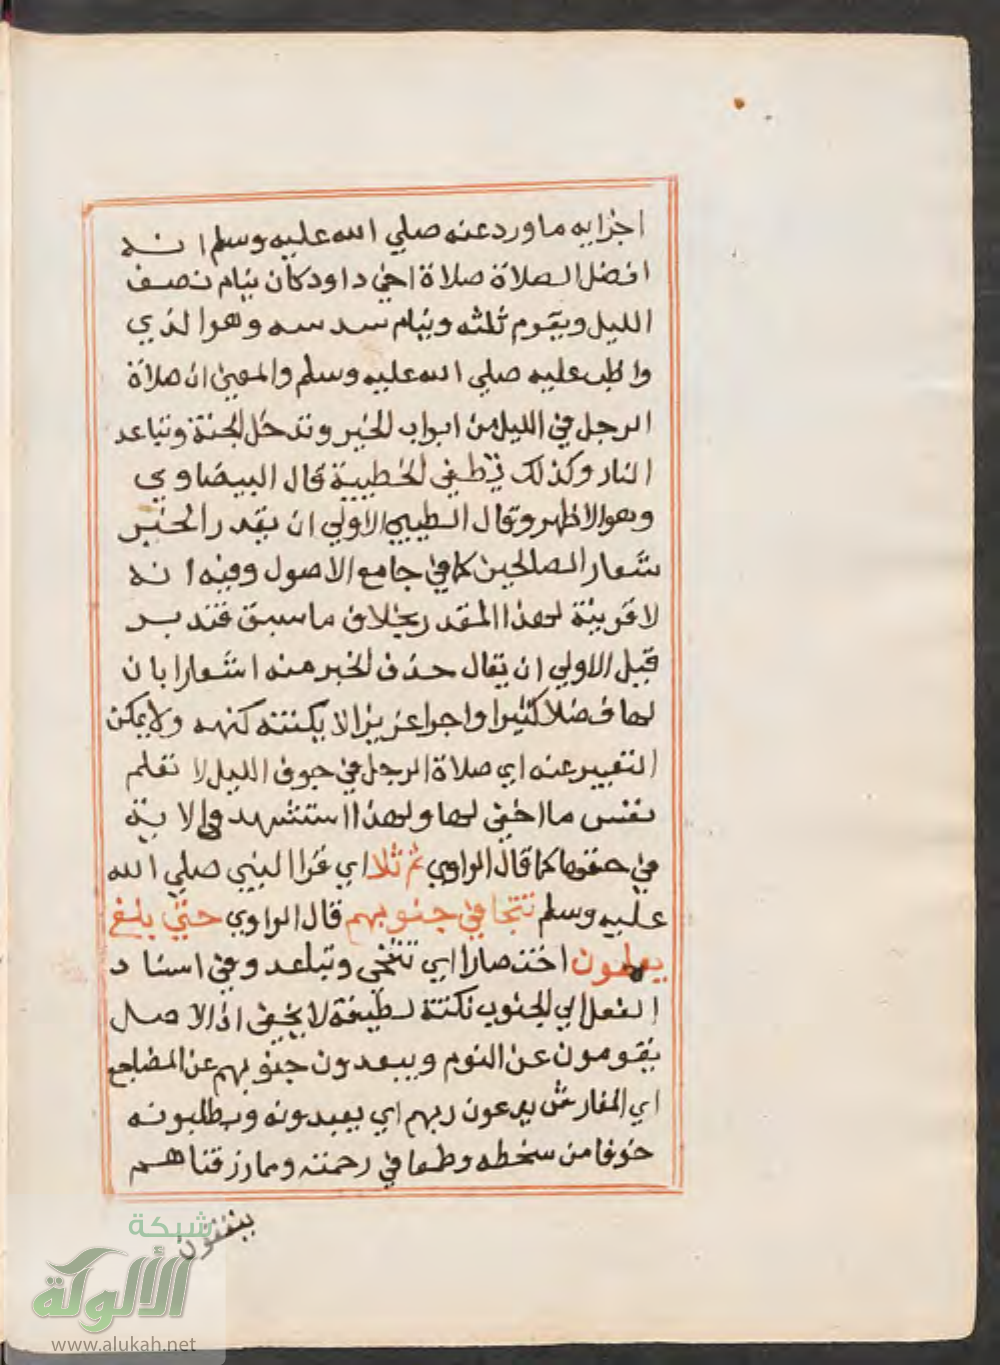 اجزايه ما ورد عنه صلي الله عليه وسلم انه
افضل الصلاة صلاة اخي داود كان ينام نصف
الليل ويقوم ثلثه وينام سدسه وهو الذي
واظب عليه صلي الله عليه وسلم والمعني ان صلاة
الرجل في الليل من ابواب الخير وتدخل الجنة وتباعد
النار وكذلك تطفي الخطيية قال البيضاوي
وهو الاظهر وقال الطيبي الاولي ان يقدر الخبر
شعار الصالحين كما في جامع الاصول وفيه انه
لا قرينة لهذا المقدر بخلاف ما سبق فتدبر
قيل الاولي ان يقال حذف الخبر منه اشعارا بان
لها فضلا كثيرا واجرا عزيزا لا يكتنه كنهه ولا يمكن
التعبير عنه اي صلاة الرجل في جوف الليل لا تعلم
نفس ما اخفي لها ولهذا استشهد والاية
في حقها كما قال الراوي ثم تلا اي قرا النبي صلي الله
عليه وسلم تتجافي جنوبهم قال الراوي حتي بلغ
يعلمون اختصارا اي تتنحى وتباعد وفي اسناد
الفعل الي الجنوب نكتة لطيفة لا يخفي اذ الاصل
يقومون عن النوم ويبعدون جنوبهم عن المضاجع
اي المفارش يدعون ربهم اي يعبدونه ويطلبونه
خوفا من سخطه وطمعا في رحمته ومما رزقناهم
ينفقون
شبكة
الألوكة
www.alukah.net